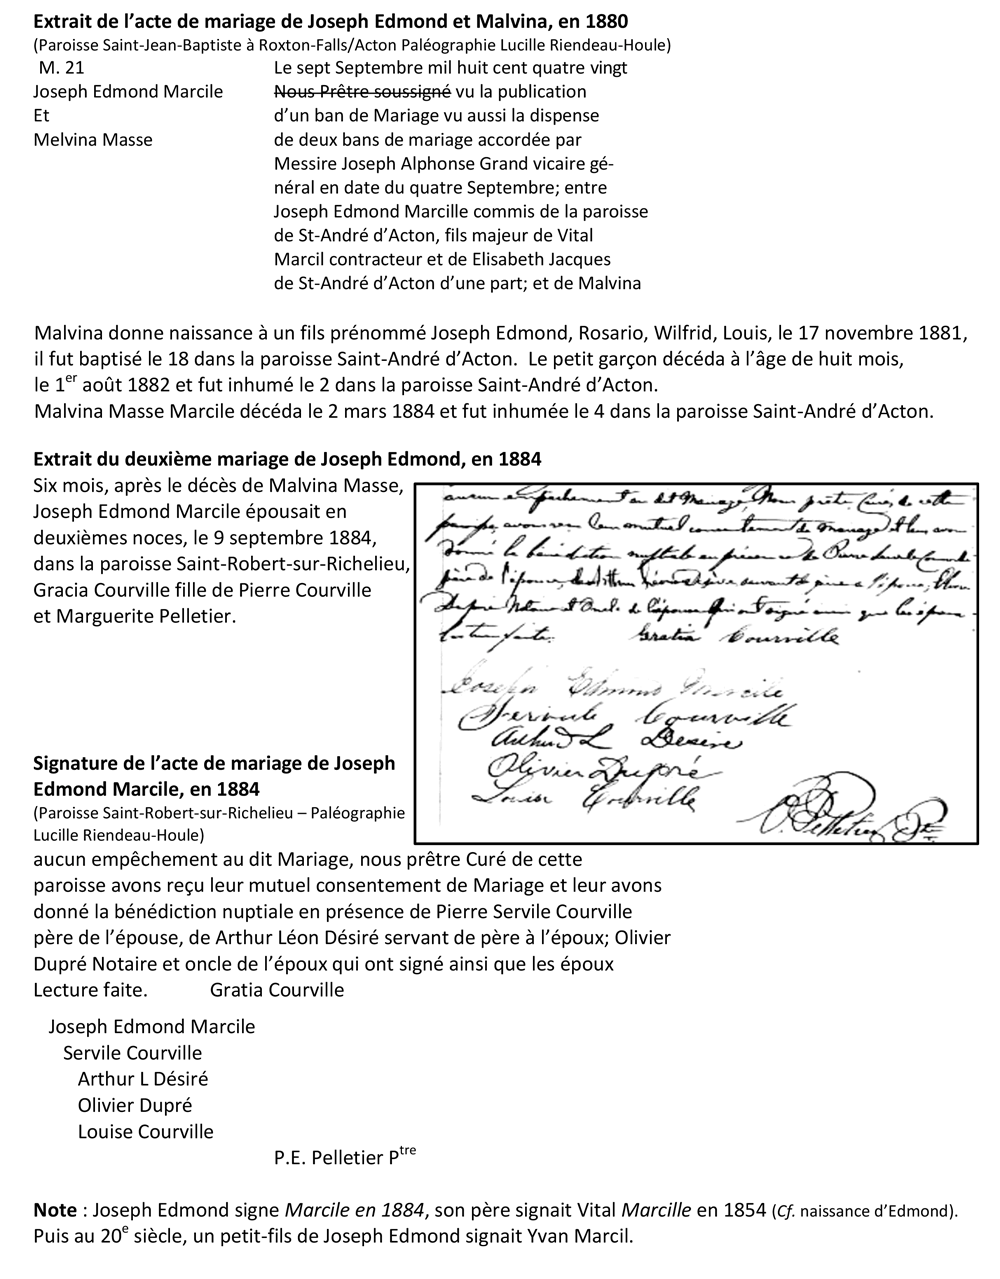 Extrait de l’acte de mariage de Joseph Edmond et Malvina, en 1880
(Paroisse Saint-Jean-Baptiste à Roxton-Falls/Acton Paléographie Lucille Riendeau-Houle)
M. 21 Le sept Septembre mil huit cent quatre vingt
Joseph Edmond Marcile Nous Prêtre soussigné vu la publication
Et d’un ban de Mariage vu aussi la dispense
Melvina Masse de deux bans de mariage accordée par
Messire Joseph Alphonse Grand vicaire gé-
néral en date du quatre Septembre; entre
Joseph Edmond Marcille commis de la paroisse
de St-André d’Acton, fils majeur de Vital
Marcil contracteur et de Elisabeth Jacques
de St-André d’Acton d’une part; et de Malvina
Malvina donne naissance à un fils prénommé Joseph Edmond, Rosario, Wilfrid, Louis, le 17 novembre 1881,
il fut baptisé le 18 dans la paroisse Saint-André d’Acton. Le petit garçon décéda à l’âge de huit mois,
le 1er août 1882 et fut inhumé le 2 dans la paroisse Saint-André d’Acton.
Malvina Masse Marcile décéda le 2 mars 1884 et fut inhumée le 4 dans la paroisse Saint-André d’Acton.
Extrait du deuxième mariage de Joseph Edmond, en 1884
Six mois, après le décès de Malvina Masse,
Joseph Edmond Marcile épousait en
deuxièmes noces, le 9 septembre 1884,
dans la paroisse Saint-Robert-sur-Richelieu,
Gracia Courville fille de Pierre Courville
et Marguerite Pelletier.
aucun empêchement au dit Mariage, Nous prêtre Curé de cette
paroisse avons reçu leur mutuel consentement de mariage et leur avons
donné la bénédiction nuptiale en présence de Pierre Servile Courville
père de l'épouse, de Arthur Léon Désiré servant de père à l'époux, Olivier
Dupré Notaire et Oncle de l'époux qui ont signé ainsi que les époux
lecture faite. Gratia Courville
Joseph Edmond Marcile
Servile Courville
Arthur L Desiré
Olivier Dupré
Louise Courville
P. E. Pelletier Ptre
Signature de l’acte de mariage de Joseph
Edmond Marcile, en 1884
(Paroisse Saint-Robert-sur-Richelieu – Paléographie
Lucille Riendeau-Houle)
aucun empêchement au dit Mariage, nous prêtre Curé de cette
paroisse avons reçu leur mutuel consentement de Mariage et leur avons
donné la bénédiction nuptiale en présence de Pierre Servile Courville
père de l’épouse, de Arthur Léon Désiré servant de père à l’époux; Olivier
Dupré Notaire et oncle de l’époux qui ont signé ainsi que les époux
Lecture faite. Gratia Courville
Joseph Edmond Marcile
Servile Courville
Arthur L Désiré
Olivier Dupré
Louise Courville
P.E. Pelletier Ptre
Note : Joseph Edmond signe Marcile en 1884, son père signait Vital Marcille en 1854 (Cf. naissance d’Edmond).
Puis au 20e siècle, un petit-fils de Joseph Edmond signait Yvan Marcil.